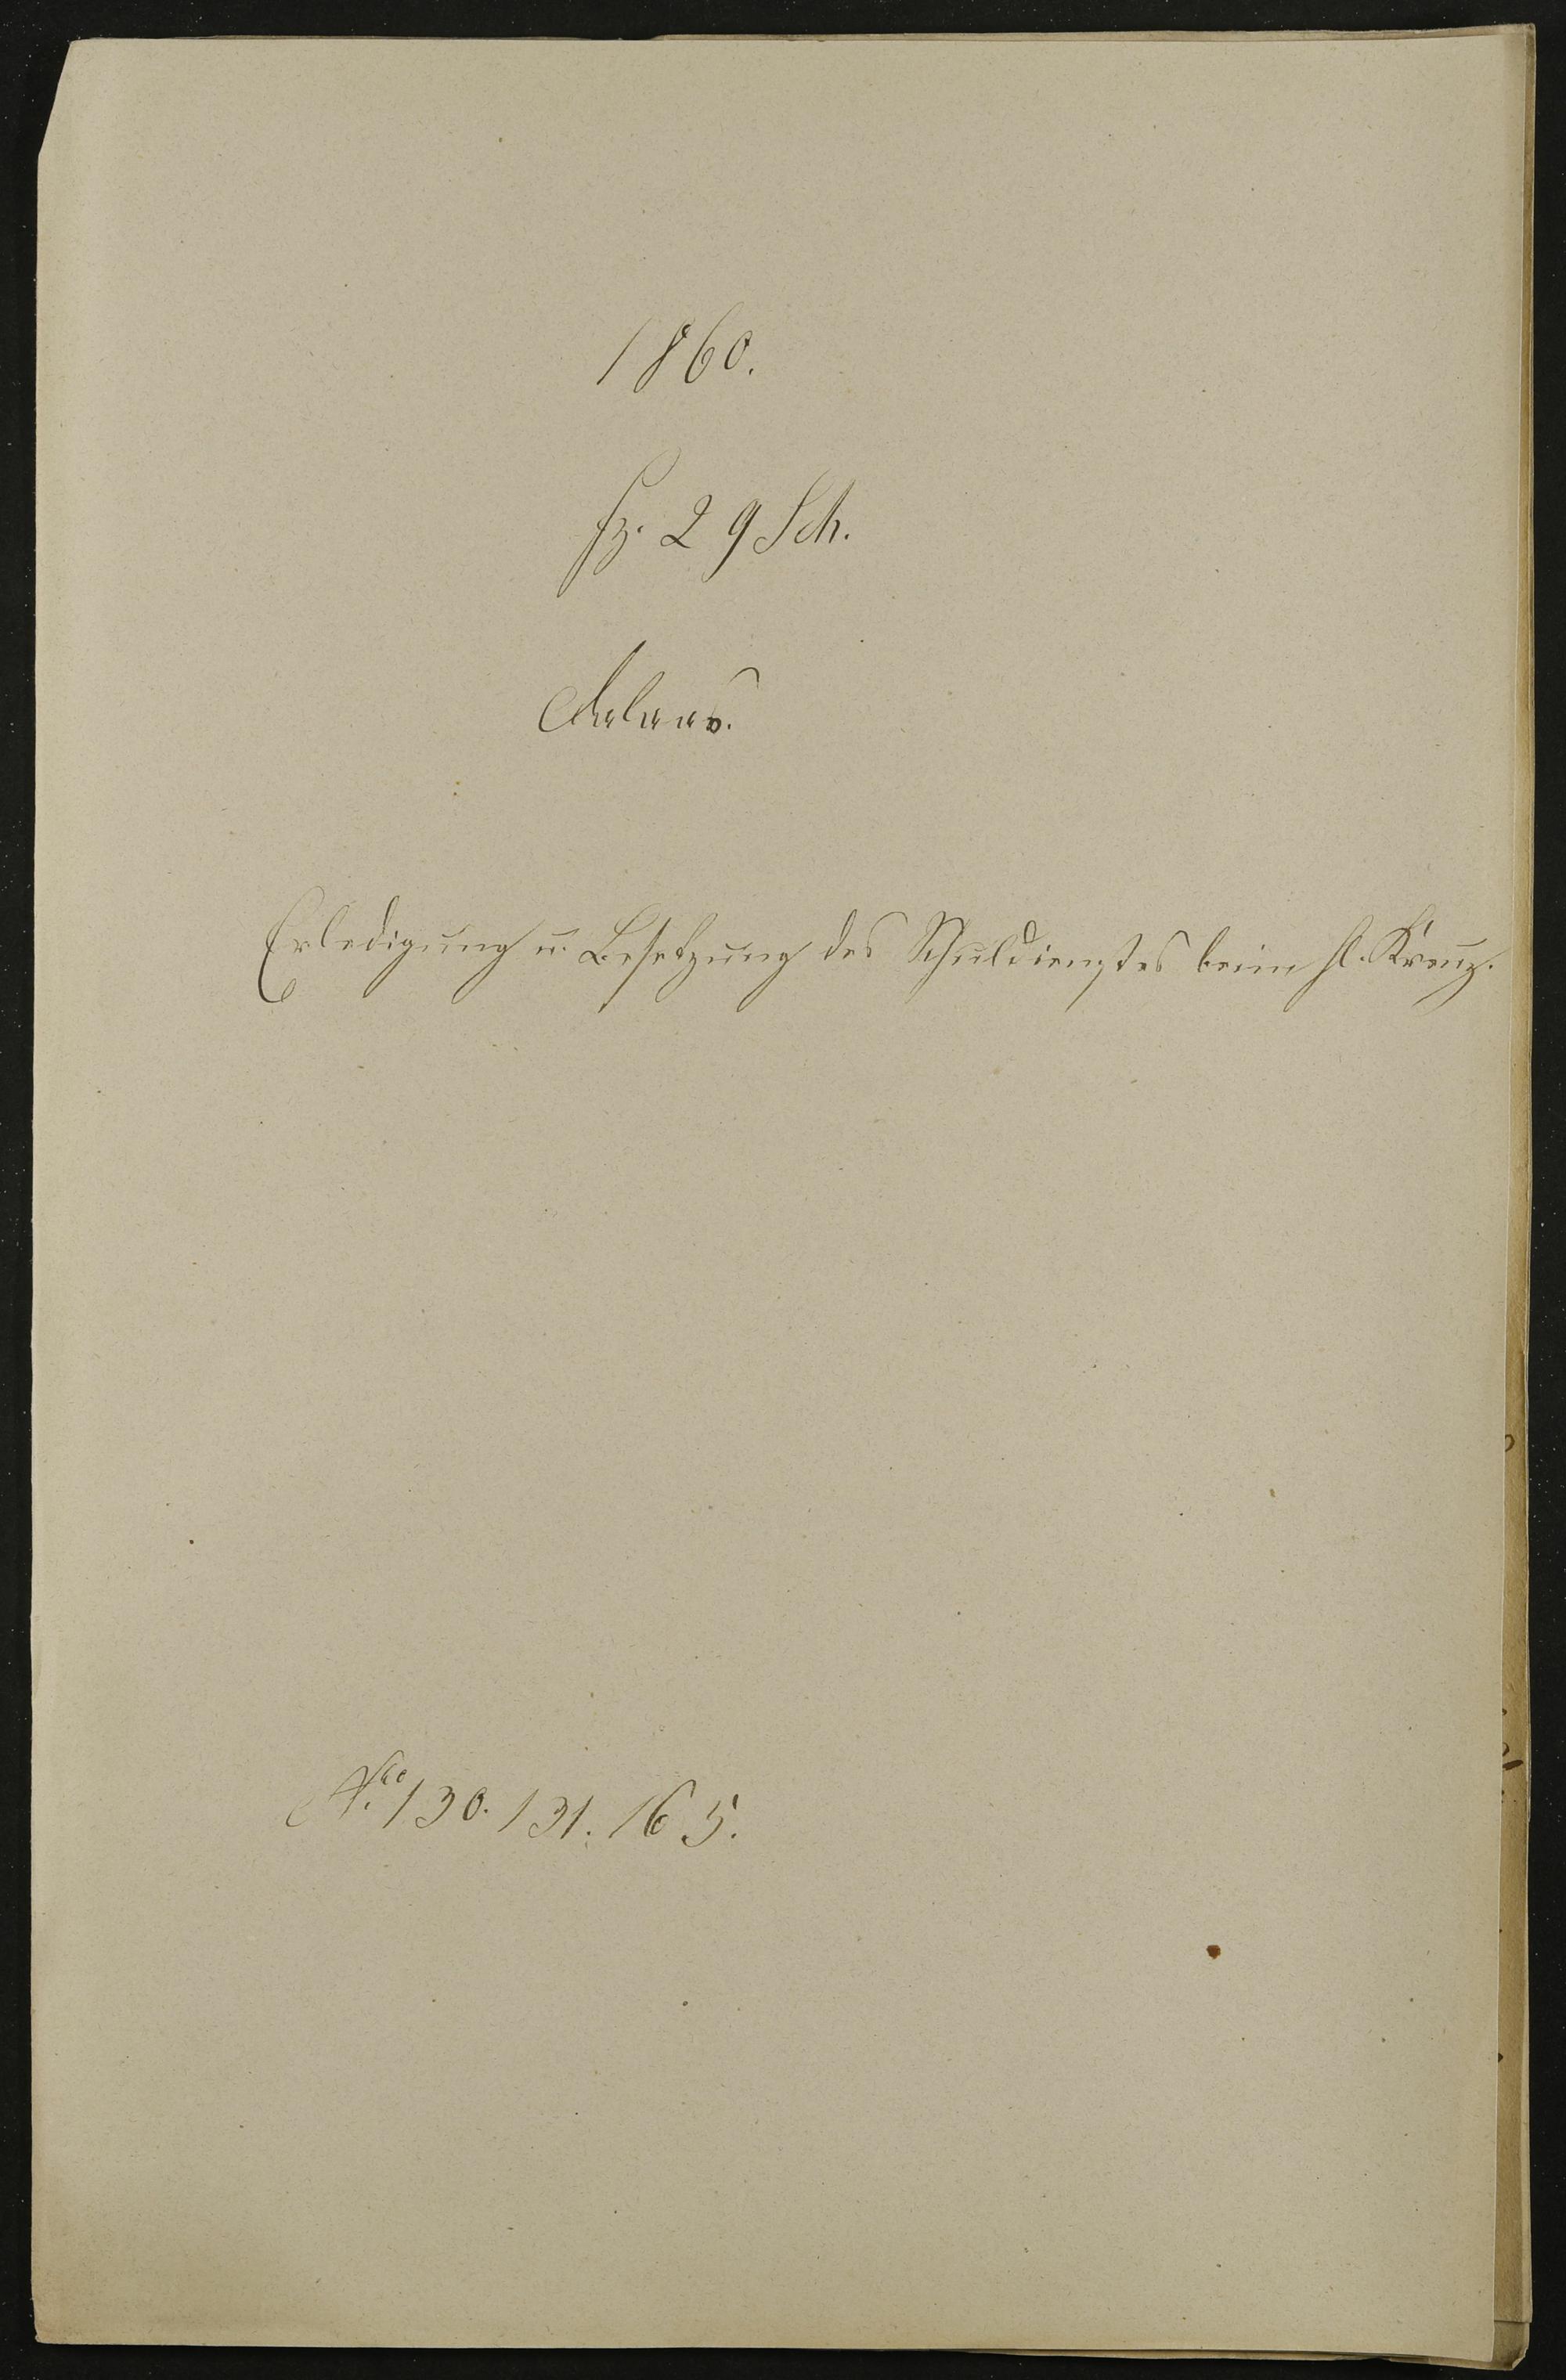 1860.
Fz. 29 Sch.
Dalaas.
Erledigung u. Besetzung des Schuldienstes beim hl. Kreuz.
Nro 130. 131. 165.